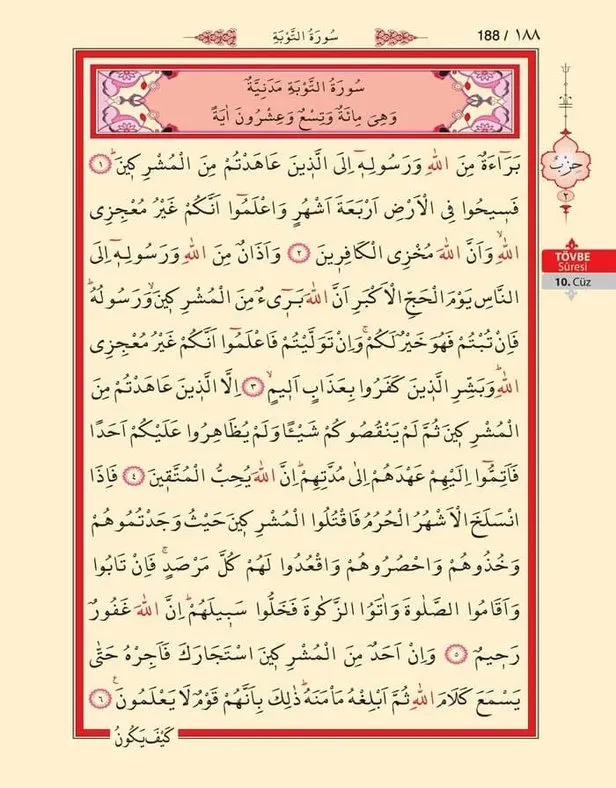 188 / ١٨٨
سُورَةُ التَّوْبَةِ
سُورَةُ التَّوْبَةِ مَدَنِيَّةٌ
وَهِىَ مِائَةٌ وَتِسْعٌ وَعِشْرُونَ اٰيَةً
بَرَٓاءَةٌ مِنَ اللّٰهِ وَرَسُولِه۪ٓ اِلَى الَّذ۪ينَ عَاهَدْتُمْ مِنَ الْمُشْرِك۪ينَۜ ﴿١﴾
فَس۪يحُوا فِى الْاَرْضِ اَرْبَعَةَ اَشْهُرٍ وَاعْلَمُٓوا اَنَّكُمْ غَيْرُ مُعْجِزِى
اللّٰهِۙ وَاَنَّ اللّٰهَ مُخْزِى الْكَافِر۪ينَ ﴿٢﴾ وَاَذَانٌ مِنَ اللّٰهِ وَرَسُولِه۪ٓ اِلَى
النَّاسِ يَوْمَ الْحَجِّ الْاَكْبَرِ اَنَّ اللّٰهَ بَر۪ٓىءٌ مِنَ الْمُشْرِك۪ينَۙ وَرَسُولُهُۜ
فَاِنْ تُبْتُمْ فَهُوَ خَيْرٌ لَكُمْۚ وَاِنْ تَوَلَّيْتُمْ فَاعْلَمُٓوا اَنَّكُمْ غَيْرُ مُعْجِزِى
اللّٰهِۜ وَبَشِّرِ الَّذ۪ينَ كَفَرُوا بِعَذَابٍ اَل۪يمٍۙ ﴿٣﴾ اِلَّا الَّذ۪ينَ عَاهَدْتُمْ مِنَ
الْمُشْرِك۪ينَ ثُمَّ لَمْ يَنْقُصُوكُمْ شَيْـًٔا وَلَمْ يُظَاهِرُوا عَلَيْكُمْ اَحَدًا
فَاَتِمُّٓوا اِلَيْهِمْ عَهْدَهُمْ اِلٰى مُدَّتِهِمْۜ اِنَّ اللّٰهَ يُحِبُّ الْمُتَّق۪ينَ ﴿٤﴾ فَاِذَا
انْسَلَخَ الْاَشْهُرُ الْحُرُمُ فَاقْتُلُوا الْمُشْرِك۪ينَ حَيْثُ وَجَدْتُمُوهُمْ
وَخُذُوهُمْ وَاحْصُرُوهُمْ وَاقْعُدُوا لَهُمْ كُلَّ مَرْصَدٍۚ فَاِنْ تَابُوا
وَاَقَامُوا الصَّلٰوةَ وَاٰتَوُا الزَّكٰوةَ فَخَلُّوا سَب۪يلَهُمْۜ اِنَّ اللّٰهَ غَفُورٌ
رَح۪يمٌ ﴿٥﴾ وَاِنْ اَحَدٌ مِنَ الْمُشْرِك۪ينَ اسْتَجَارَكَ فَاَجِرْهُ حَتّٰى
يَسْمَعَ كَلَامَ اللّٰهِ ثُمَّ اَبْلِغْهُ مَأْمَنَهُۜ ذٰلِكَ بِاَنَّهُمْ قَوْمٌ لَا يَعْلَمُونَ۟ ﴿٦﴾
كَيْفَ يَكُونُ
حِزْبٌ
٢
TÖVBE
Sûresi
10. Cüz